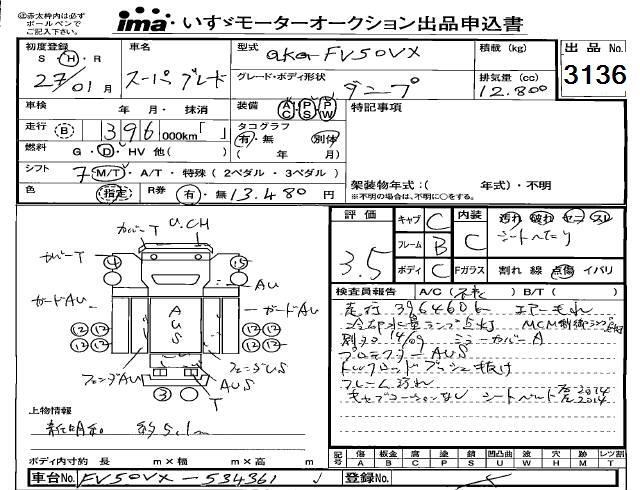 注意 赤太枠内は必ず
ボールペンで
ご記入下さい。
ima いすゞモーターオークション出品申込書
初度登録
S・H・R
27/01月
車名
スーパーグレード
型式
QKG-FV50VX
グレード・ボディ形状
ダンプ
積載(kg)
排気量(cc)
12.800
出品No.
3136
車検 年・月・抹消
走行 B 396 000km「 」
燃料 G・D・HV 他( )
シフト 7 M/T・A/T・特殊(2ペダル・3ペダル)
色 指定 R券 有・無 13.480円
装備 AC・PS・PW
タコグラフ
有・無 別体
( 年 月)
特記事項
架装物年式:( 年式)・不明
※不明の場合は、不明に○をする。
カバーT U.CH
④ ⑮
AU
ガードAU ガードAU
AUS
⑫⑫ ⑫⑫
⑫⑫ ⑫⑫
フェンダAU フェンダUS
AUS
T
③
上物情報
新明和 約5.1m
ボディ内寸約 長 m×幅 m×高 m
評価 3.5
キャブ C
フレーム B
ボディ C
内装 C
汚れ 破れ コゲ スレ
シートヘたり
Fガラス 割れ 線 点傷 イバリ
検査員報告 A/C( ) B/T( )
走行396460k エアーもれ
冷却水量ランプ点灯 MCM制御ランプ点灯
別タコ14/09 ミラーカバーA
プロテクターAUS
トルクロッドブッシュ抜け
フレーム錆れ
キャブコーションなし シートベルト 2014
2014
記号 傷 A 板金 B 腐 C 塗 P 錆 S 凹凸曲 U 波 W 穴 H 跡 M レツ割 T
車台No. FV50VX-534361
登録No.